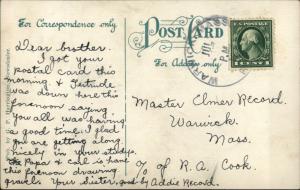 For Correspondence only.
POST CARD
For Address only.
WARWICK MASS
JUL
PM
ONE CENT
Dear brother.
I got your
postal card this
morning & Gertrude
was down here this
forenoon saying
you all was having
a good time. I glad
you are getting along
nicely in your studys.
Papa & Cal is have
this forenoon drawing
gravels Your sister, and
by Addie Record.
Master Elmer Record.
Warwick
Mass.
% of R. A. Cook.